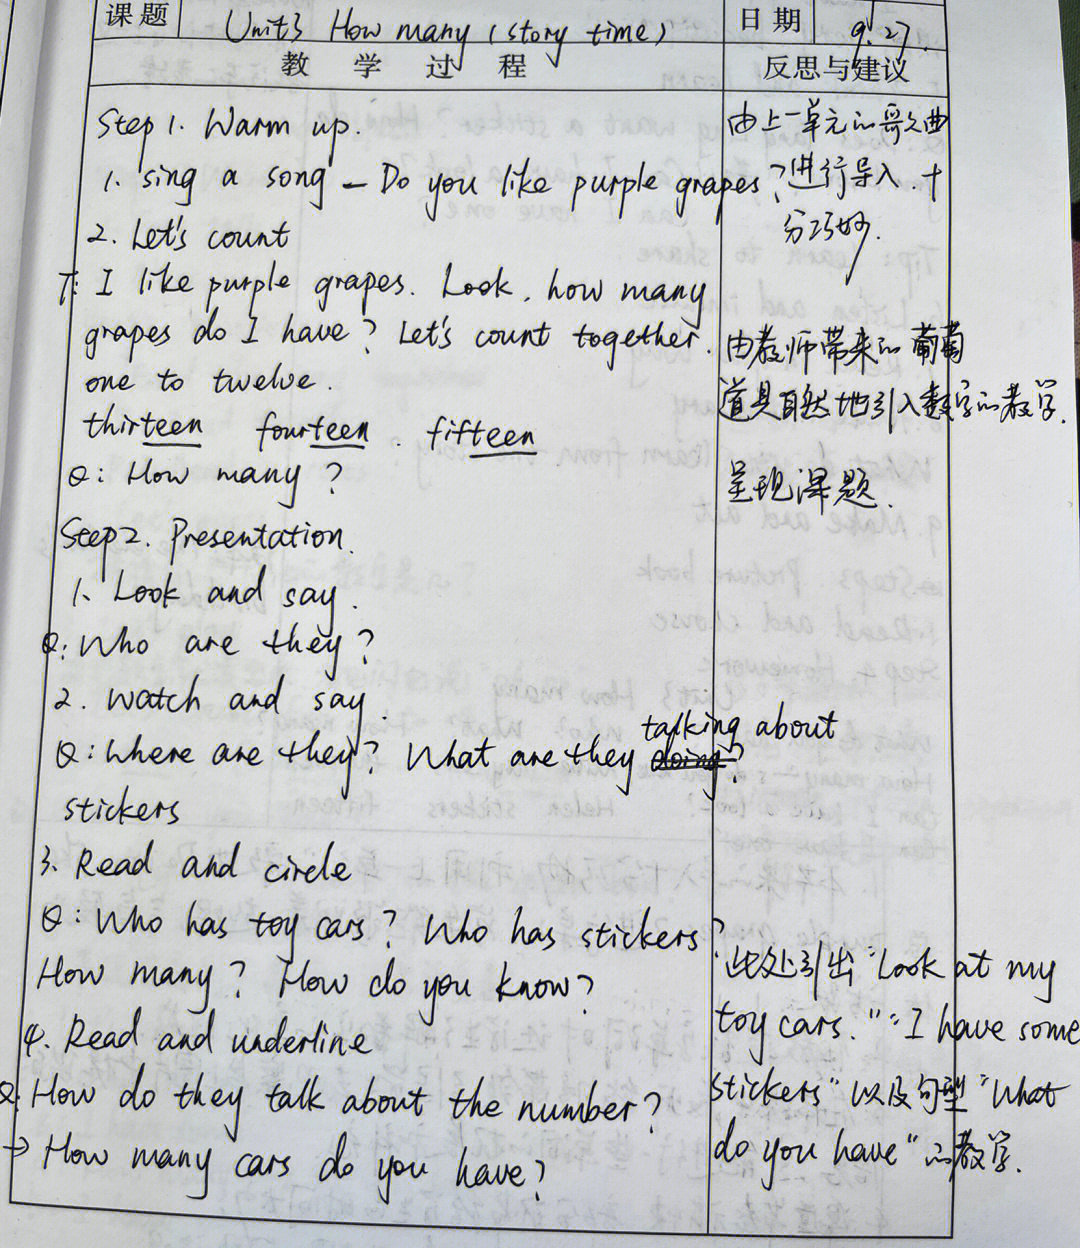 课题 Unit3 How many (story time) 日期 9.27.
教学过程 反思与建议
Step 1. Warm up.
1. sing a song - Do you like purple grapes?
2. Let's count
T: I like purple grapes. Look, how many
grapes do I have? Let's count together.
one to twelve.
thirteen fourteen. fifteen
Q: How many?
Step2. Presentation.
1. Look and say.
Q: Who are they?
2. Watch and say.
talking about
Q: Where are they? What are they doing?
stickers
3. Read and circle
Q: Who has toy cars? Who has stickers?
How many? How do you know?
4. Read and underline
Q: How do they talk about the number?
→ How many cars do you have?
由上一单元的歌曲
进行导入十
分巧妙.
由教师带来的葡萄
道具自然地引入数字的教学.
呈现课题.
此处引出"Look at my
toy cars.""I have some
stickers"以及句型"What
do you have"的教学.